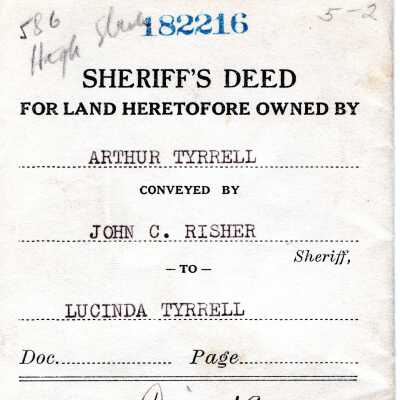 586
High
182216
5-2
SHERIFF'S DEED
FOR LAND HERETOFORE OWNED BY
ARTHUR TYRRELL
CONVEYED BY
JOHN C. RISHER
Sheriff,
— TO —
LUCINDA TYRRELL
Doc. Page